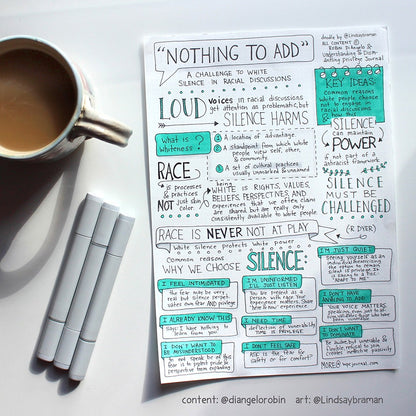 doodle by @Lindsaybraman
ALL CONTENT ©
Robin DiAngelo &
Understanding & Dismantling
privilege Journal
"NOTHING TO ADD"
A CHALLENGE TO WHITE
SILENCE IN RACIAL DISCUSSIONS
LOUD voices in racial discussions
get attention as problematic, but
SILENCE HARMS
KEY IDEAS:
Common reasons
white people choose
not to engage
in racial
discussions
& how this
SILENCE
can maintain
POWER
if not part of a
antiracist framework.
What is
Whiteness?
1 A location of advantage.
2 A standpoint from which white
people view self, other,
& community.
3 A set of cultural practices
usually unmarked & unnamed
RACE
is processes
& practices
NOT just skin
color.
being
WHITE IS RIGHTS, VALUES,
BELIEFS, PERSPECTIVES, AND
experiences that we often claim
are shared but are really only
consistently available to white people.
SILENCE
MUST BE
CHALLENGED
RACE IS NEVER NOT AT PLAY
(R DYER)
White silence protects white power
Common reasons
WHY WE CHOOSE SILENCE:
I'M JUST QUIET
Seeing yourself as an
individual
the option to remain
silent is privilege.
"ADAPT TO ME"
I FEEL INTIMIDATED
the fear may be very
real but silence perpetuates
own fear AND privilege
I'M UNINFORMED
I'LL JUST LISTEN
You be present as a
person with race. Your
experience matters. Share
I DON'T HAVE
ANYTHING TO ADD
YOUR VOICE MATTERS,
I ALREADY KNOW THIS
says: I have nothing to
learn from you
I NEED TIME
deflection of vulnerability
TIME IS PRIVILEGE
I DON'T WANT TO
BE MISUNDERSTOOD
to not speak because of this
fear is to protect pride
perspective from expanding
I DON'T FEEL SAFE
ASK: is the fear for
safety or for comfort?
I DON'T WANT
TO DOMINATE
Be humble, but vulnerable &
flexible, refusal to join
creates negative passivity
MORE @ wpcjournal.com
content: @diangelorobin art: @Lindsaybraman